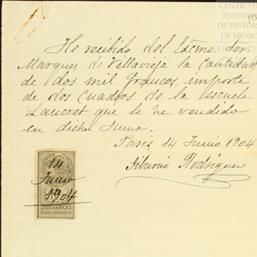 CENTRO DE
ESTUDIOS
DE HISTORIA
DE MEXICO
He recibido del Excmo. Sor.
Marques de Villavieja la cantidad
de dos mil francos, importe
de dos cuadros de la escuela
Laucret que le he vendido
en dicha suma.
Paris 14 Junio 1904
Tiburcio Rodriguez
14
Junio
1904